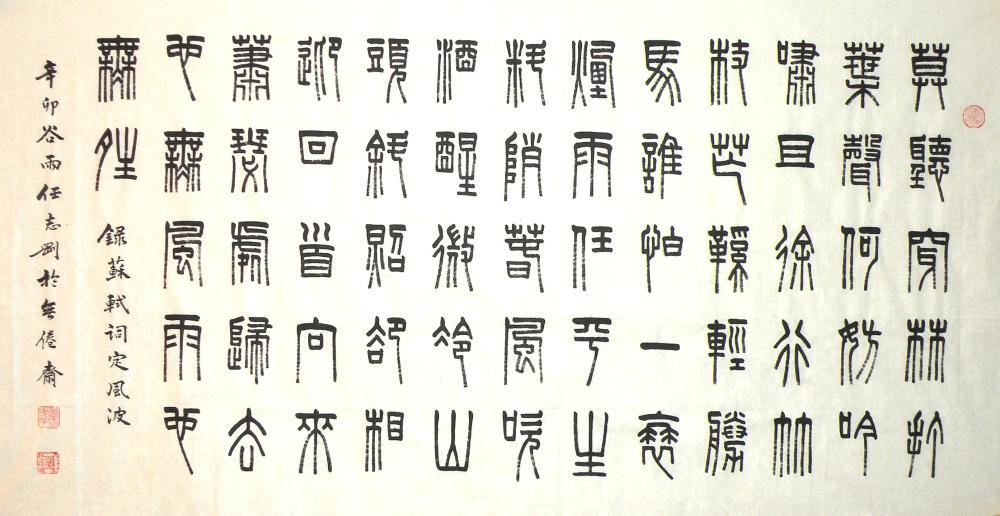 莫聽穿林打
葉聲何妨吟
嘯且徐行竹
杖芒鞵輕勝
馬誰怕一蓑
煙雨任平生
料陗春風吹
酒醒微冷山
頭斜照卻相
迎回首向來
蕭瑟處歸去
也無風雨也
無晴
錄蘇軾詞定風波
辛卯谷雨任志剛於無倦齋